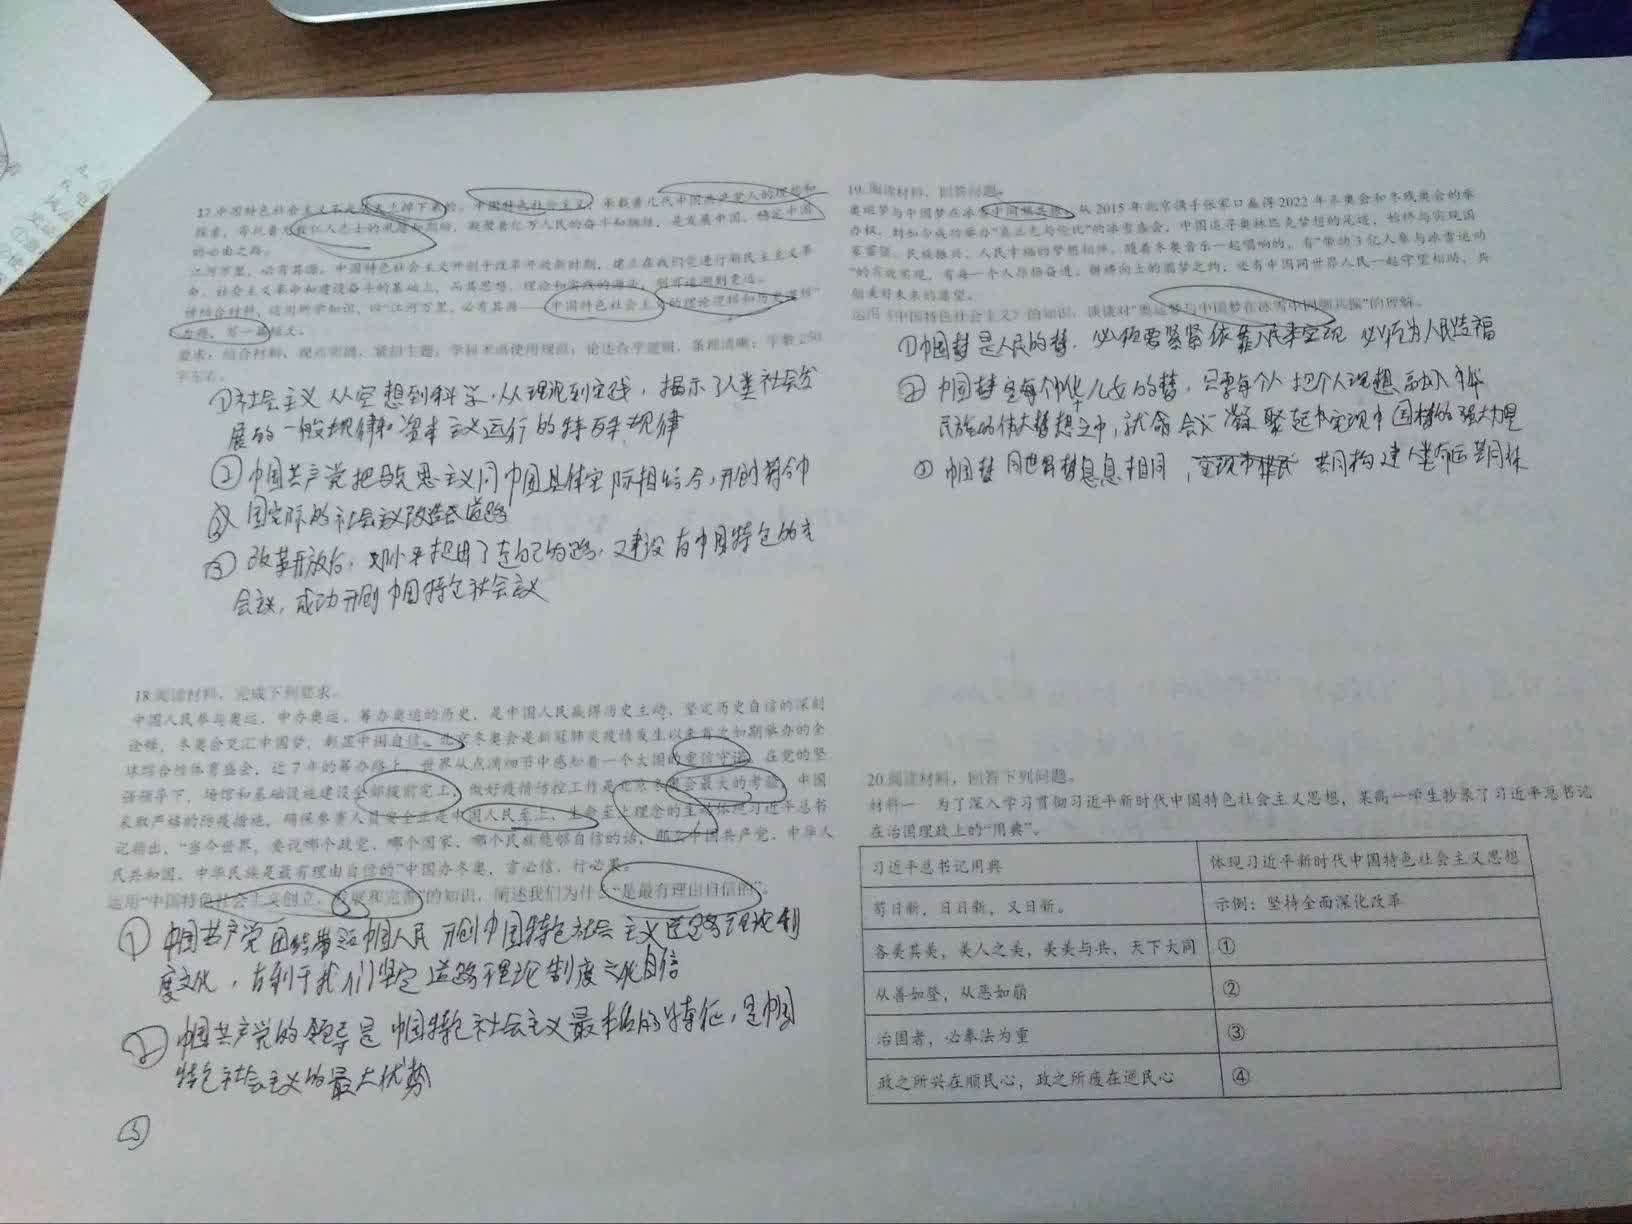 17.中国特色社会主义不是从天上掉下来的。中国特色社会主义,承载着几代中国共产党人的理想和
探索,寄托着无数仁人志士的夙愿和期盼,凝聚着亿万人民的奋斗和牺牲,是发展中国、稳定中国
的必由之路。
江河万里,必有其源。中国特色社会主义开创于改革开放新时期,建立在我们党进行新民主主义革
命、社会主义革命和建设奋斗的基础上,而其思想、理论和实践的源头,则可追溯到更远。
请结合材料,运用所学知识,以“江河万里,必有其源——中国特色社会主义的理论逻辑和历史逻辑”
为题,写一篇短文。
要求:结合材料,观点明确,紧扣主题;学科术语使用规范;论述合乎逻辑,条理清晰;字数250
字左右。
①社会主义从空想到科学,从理论到实践,揭示了人类社会发
展的一般规律和资本主义运行的特殊规律
②中国共产党把马克思主义同中国具体实际相结合,开创符合中
国实际的社会主义改造式道路
③改革开放后,邓小平提出了走自己的路,建设有中国特色的社
会主义,成功开创中国特色社会主义
18.阅读材料,完成下列要求。
中国人民参与奥运、申办奥运、筹办奥运的历史,是中国人民赢得历史主动、坚定历史自信的深刻
诠释,冬奥会交汇中国梦,彰显中国自信。北京冬奥会是新冠肺炎疫情发生以来首次如期举办的全
球综合性体育盛会,近7年的筹办路上,世界从点滴细节中感知着一个大国的重信守诺。在党的坚
强领导下,场馆和基础设施建设全部提前完工,做好疫情防控工作是北京冬奥会最大的考验,中国
采取严格的防疫措施,确保参赛人员安全正是中国人民至上、生命至上理念的生动体现习近平总书
记指出,“当今世界,要说哪个政党、哪个国家、哪个民族能够自信的话,那么中国共产党、中华人
民共和国、中华民族是最有理由自信的”中国办冬奥,言必信、行必果。
运用“中国特色社会主义创立、发展和完善”的知识,阐述我们为什么“是最有理由自信的”。
① 中国共产党团结带领中国人民开创中国特色社会主义道路理论制
度文化,有利于我们坚定道路理论制度文化自信
② 中国共产党的领导是中国特色社会主义最本质的特征,是中国
特色社会主义的最大优势
③
19.阅读材料,回答问题。
奥运梦与中国梦在冰雪中同频共振,从2015年北京携手张家口赢得2022年冬奥会和冬残奥会的举
办权,到如今成功举办“真正无与伦比”的冰雪盛会,中国追寻奥林匹克梦想的足迹,始终与实现国
家富强、民族振兴、人民幸福的梦想相伴。随着冬奥音乐一起唱响的,有“带动3亿人参与冰雪运动
”的有效实现,有每一个人昂扬奋进、拼搏向上的圆梦之约,还有中国同世界人民一起守望相助、共
创美好未来的愿望。
运用《中国特色社会主义》的知识,谈谈对“奥运梦与中国梦在冰雪中同频共振”的理解。
①中国梦是人民的梦,必须要紧紧依靠人民来实现 必须为人民造福
② 中国梦是每个中华儿女的梦,只要每个人把个人理想融入中华
民族的伟大梦想之中,就会凝聚起实现中国梦的强大力量
③ 中国梦同世界梦息息相同, 共同构建人类命运共同体
20.阅读材料,回答下列问题。
材料一 为了深入学习贯彻习近平新时代中国特色社会主义思想,某高一学生抄录了习近平总书记
在治国理政上的“用典”。
习近平总书记用典 体现习近平新时代中国特色社会主义思想
苟日新,日日新,又日新。 示例:坚持全面深化改革
各美其美,美人之美,美美与共,天下大同 ①
从善如登,从恶如崩 ②
治国者,必奉法为重 ③
政之所兴在顺民心,政之所废在逆民心 ④